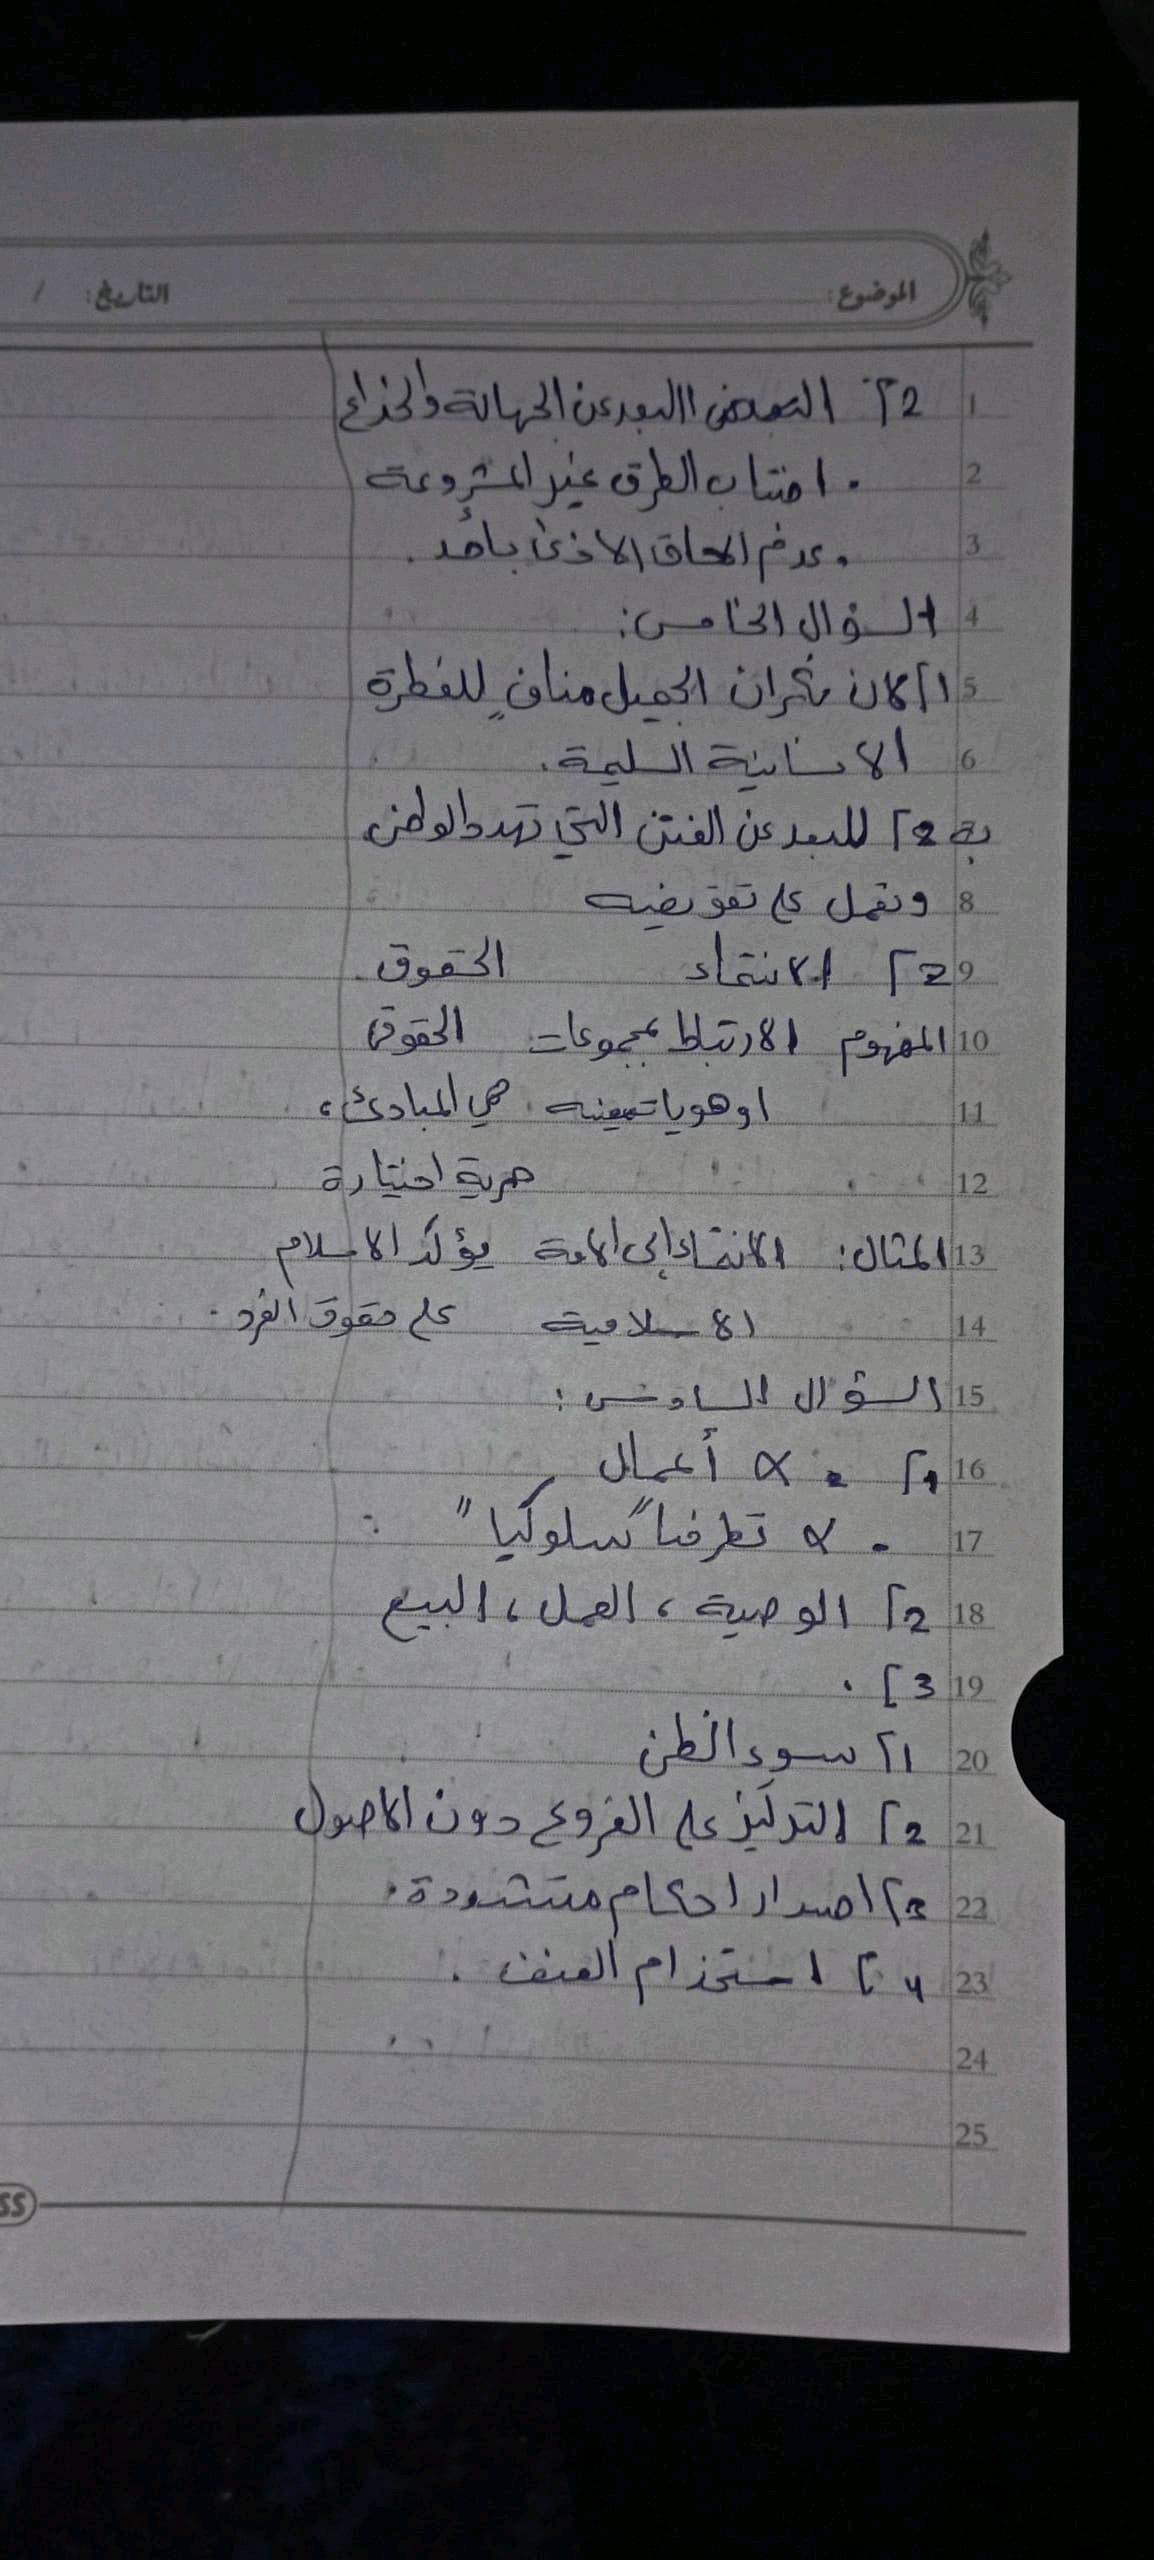 الموضوع: التاريخ: /
1 2] البعد عن الجهالة والخداع
2 . اجتناب الطرق غير المشروعة
3 . عدم إلحاق الاذى بأحد.
4 السؤال الخامس:
5 1] لان نكران الجميل منافٍ للفطرة
6 الانسانية السليمة.
2] للبعد عن الفتن التي تهدد الوطن
8 وتعمل على تقويضه
9 2] الانتماء الحقوق
10 المفهوم الارتباط بمجموعات الحقوق
11 او هويات معينه هي المبادئ،
12 حرية اختيارة
13 المثال: الانتماء إلى الامة يؤكد الاسلام
14 الاسلامية على حقوق الفرد.
15 السؤال السادس:
16 1] . x أعمال
17 . x تطرفا "سلوكيا"
18 2] الوصية، العمل، البيع
19 3] .
20 1] سوء الظن
21 2] التركيز على الفروع دون الاصول
22 3] اصدار احكام متشددة.
23 4] استخدام العنف.
24
25
SS